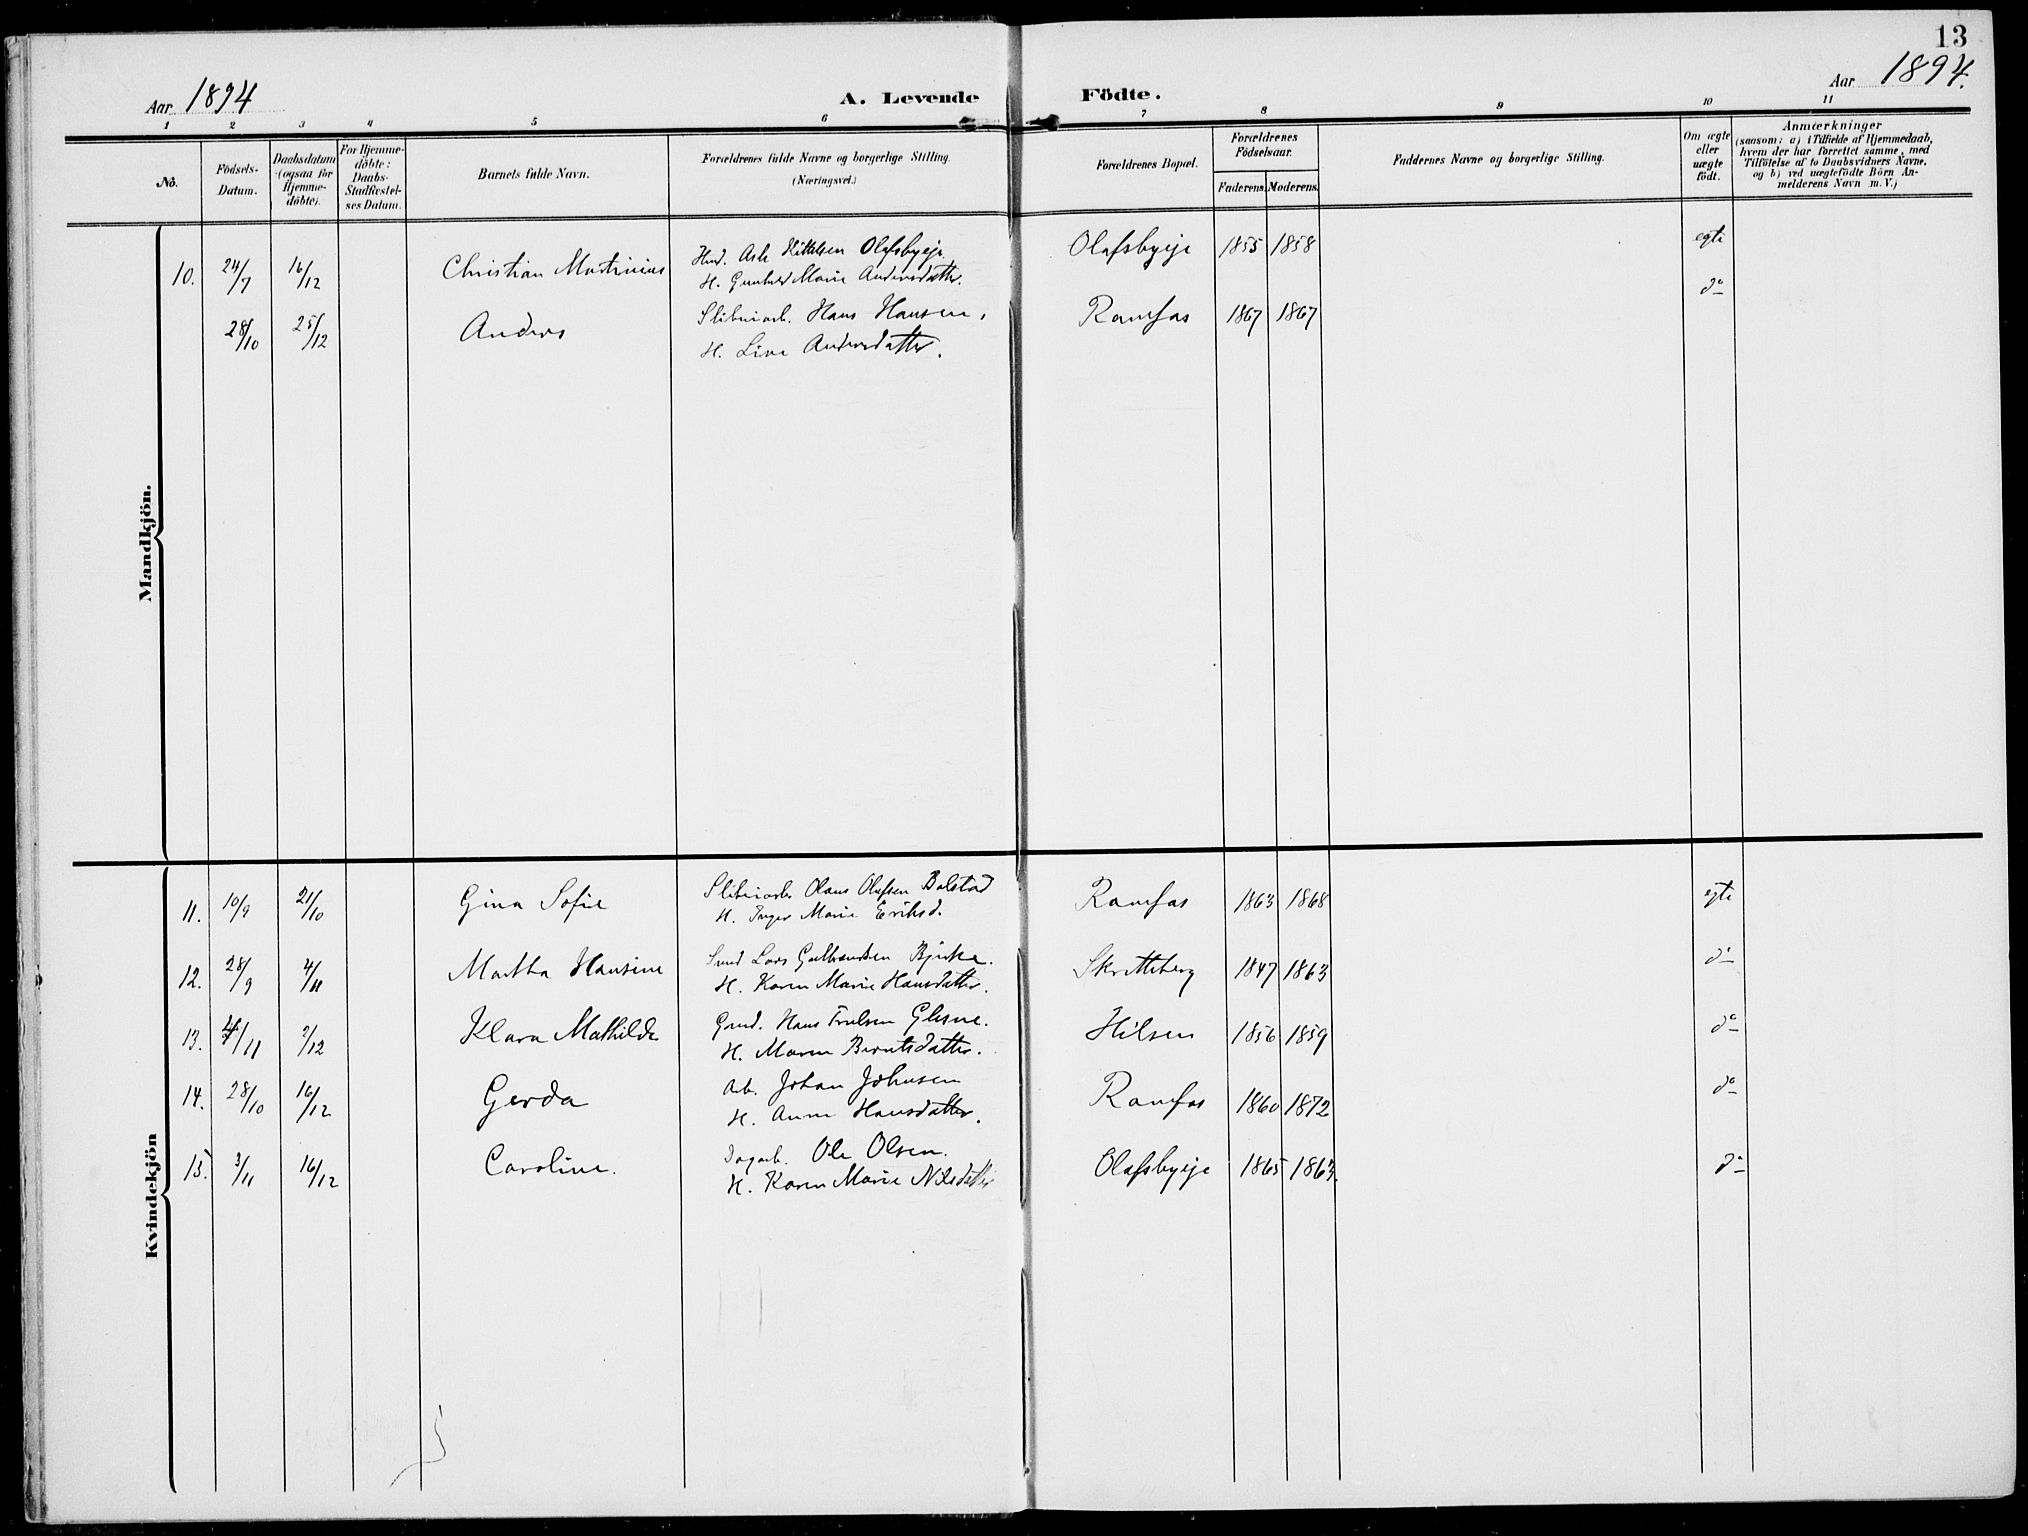 13
Aar 1894
A. Levende Födte.
Aar 1894.
1 2 3 4 5 6 7 8 9 10 11
No. Födsels-Datum. Daabsdatum (ogsaa for Hjemme-döbte). For Hjemme-döbte: Daabs-Stadfæstel-ses Datum. Barnets fulde Navn. Forældrenes fulde Navne og borgerlige Stilling. (Næringsvei.) Forældrenes Bopæl. Forældrenes Födselsaar. Faderens. Moderens. Faddernes Navne og borgerlige Stilling. Om ægte eller uægte födt. Anmærkninger (saasom: a) i Tilfælde af Hjemmedaab, hvem der har forrettet samme, med Tilföielse af to Daabsvidners Navne. og b) ved uægtefödte Börn An-melderens Navn m. V.)
Mandkjön.
10. 24/7 16/12 Christian Martinius Hmd. Asle Kittelsen Olafsbyeje Olafsbyeje 1855 1858 egte
H. Gunhild Marie Andersdatter.
28/10 25/12 Anders Sliberiarb. Hans Hansen, Ramfos 1867 1867 do
H. Live Andersdatter.
Kvindekjön
11. 10/9 21/10 Gina Sofie Sliberiarb. Olaus Olafsen Bolstad Ramfos 1863 1868 egte
H. Inger Marie Eriksd.
12. 28/9 4/11 Martha Hansine Lars Gulbrandsen Bjerke. 1847 1863 do
H. Karen Marie Hansdatter.
13. 4/11 2/12 Klara Mathilde Gmd. Hans Trulsen Glesne. Hilsen 1856 1859 do
H. Maren Berntsdatter.
14. 28/10 16/12 Gerda Arb. Johan Johnsen Ramfos 1860 1872 do
H. Anne Hansdatter.
15. 3/11 16/12 Caroline. Dagarb. Ole Olsen. Olafsbyeje 1865 1863. do
H. Karen Marie Nilsdatter